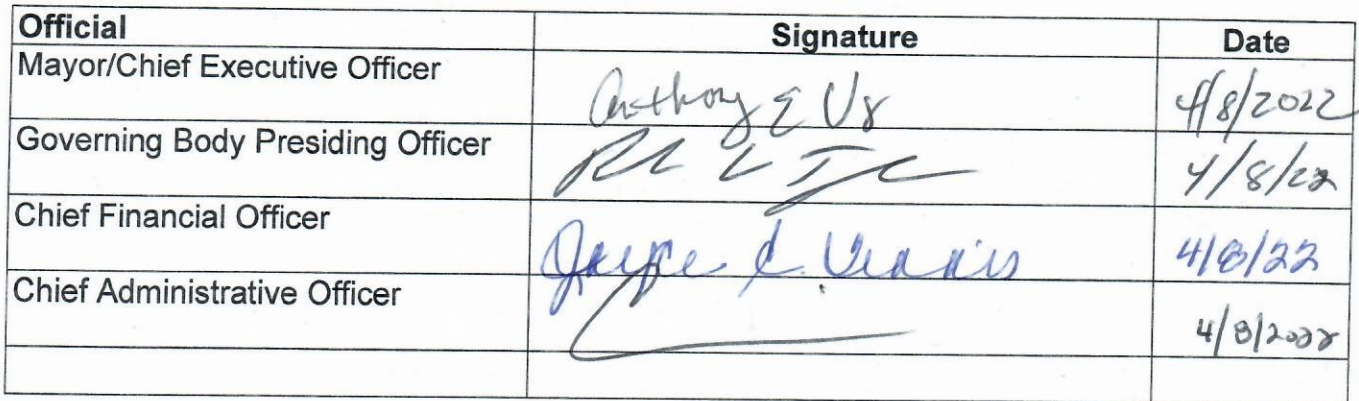 Official Signature Date
Mayor/Chief Executive Officer Anthony E Va 4/8/2022
Governing Body Presiding Officer 4/8/22
Chief Financial Officer Joyce 4/8/22
Chief Administrative Officer 4/8/2022